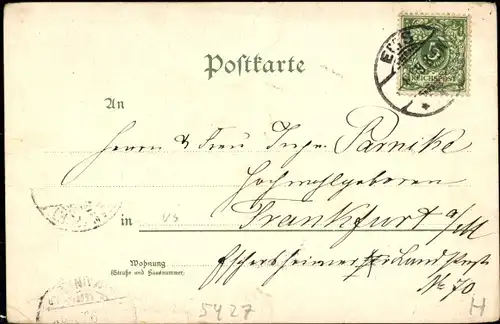 Postkarte
EMS
5
REICHSPOST
An
Herrn & Frau Ing. Parnike
Hochwohlgeboren
in Frankfurt a/M
Wohnung
(Straße und Hausnummer)
Eschersheimer Landstr.
No 70
5427
H